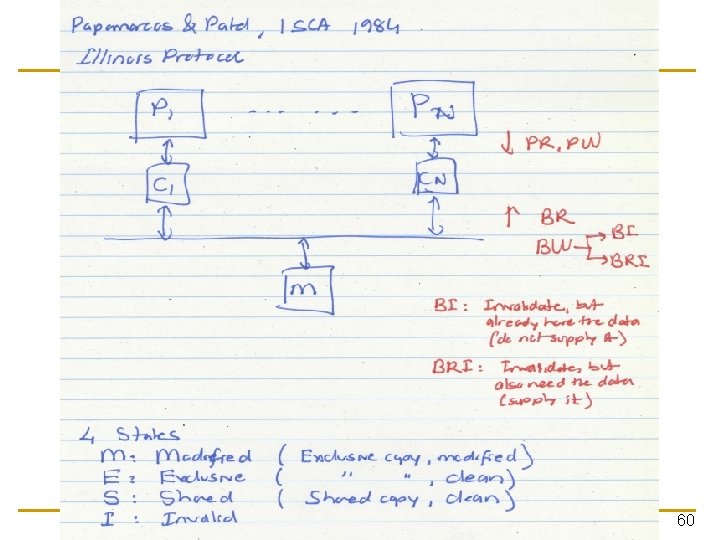 Papamarcos & Patel, ISCA 1984
Illinois Protocol
P1 . . . . . . PN
↓ PR, PW
C1 CN
↑ BR
BW → BI
→ BRI
M
BI : Invalidate, but
already have the data
(do not supply it)
BRI : Invalidate, but
also need the data
(supply it)
4 States
M: Modified ( Exclusive copy, modified)
E: Exclusive ( " " , clean)
S : Shared ( Shared copy, clean)
I : Invalid
60